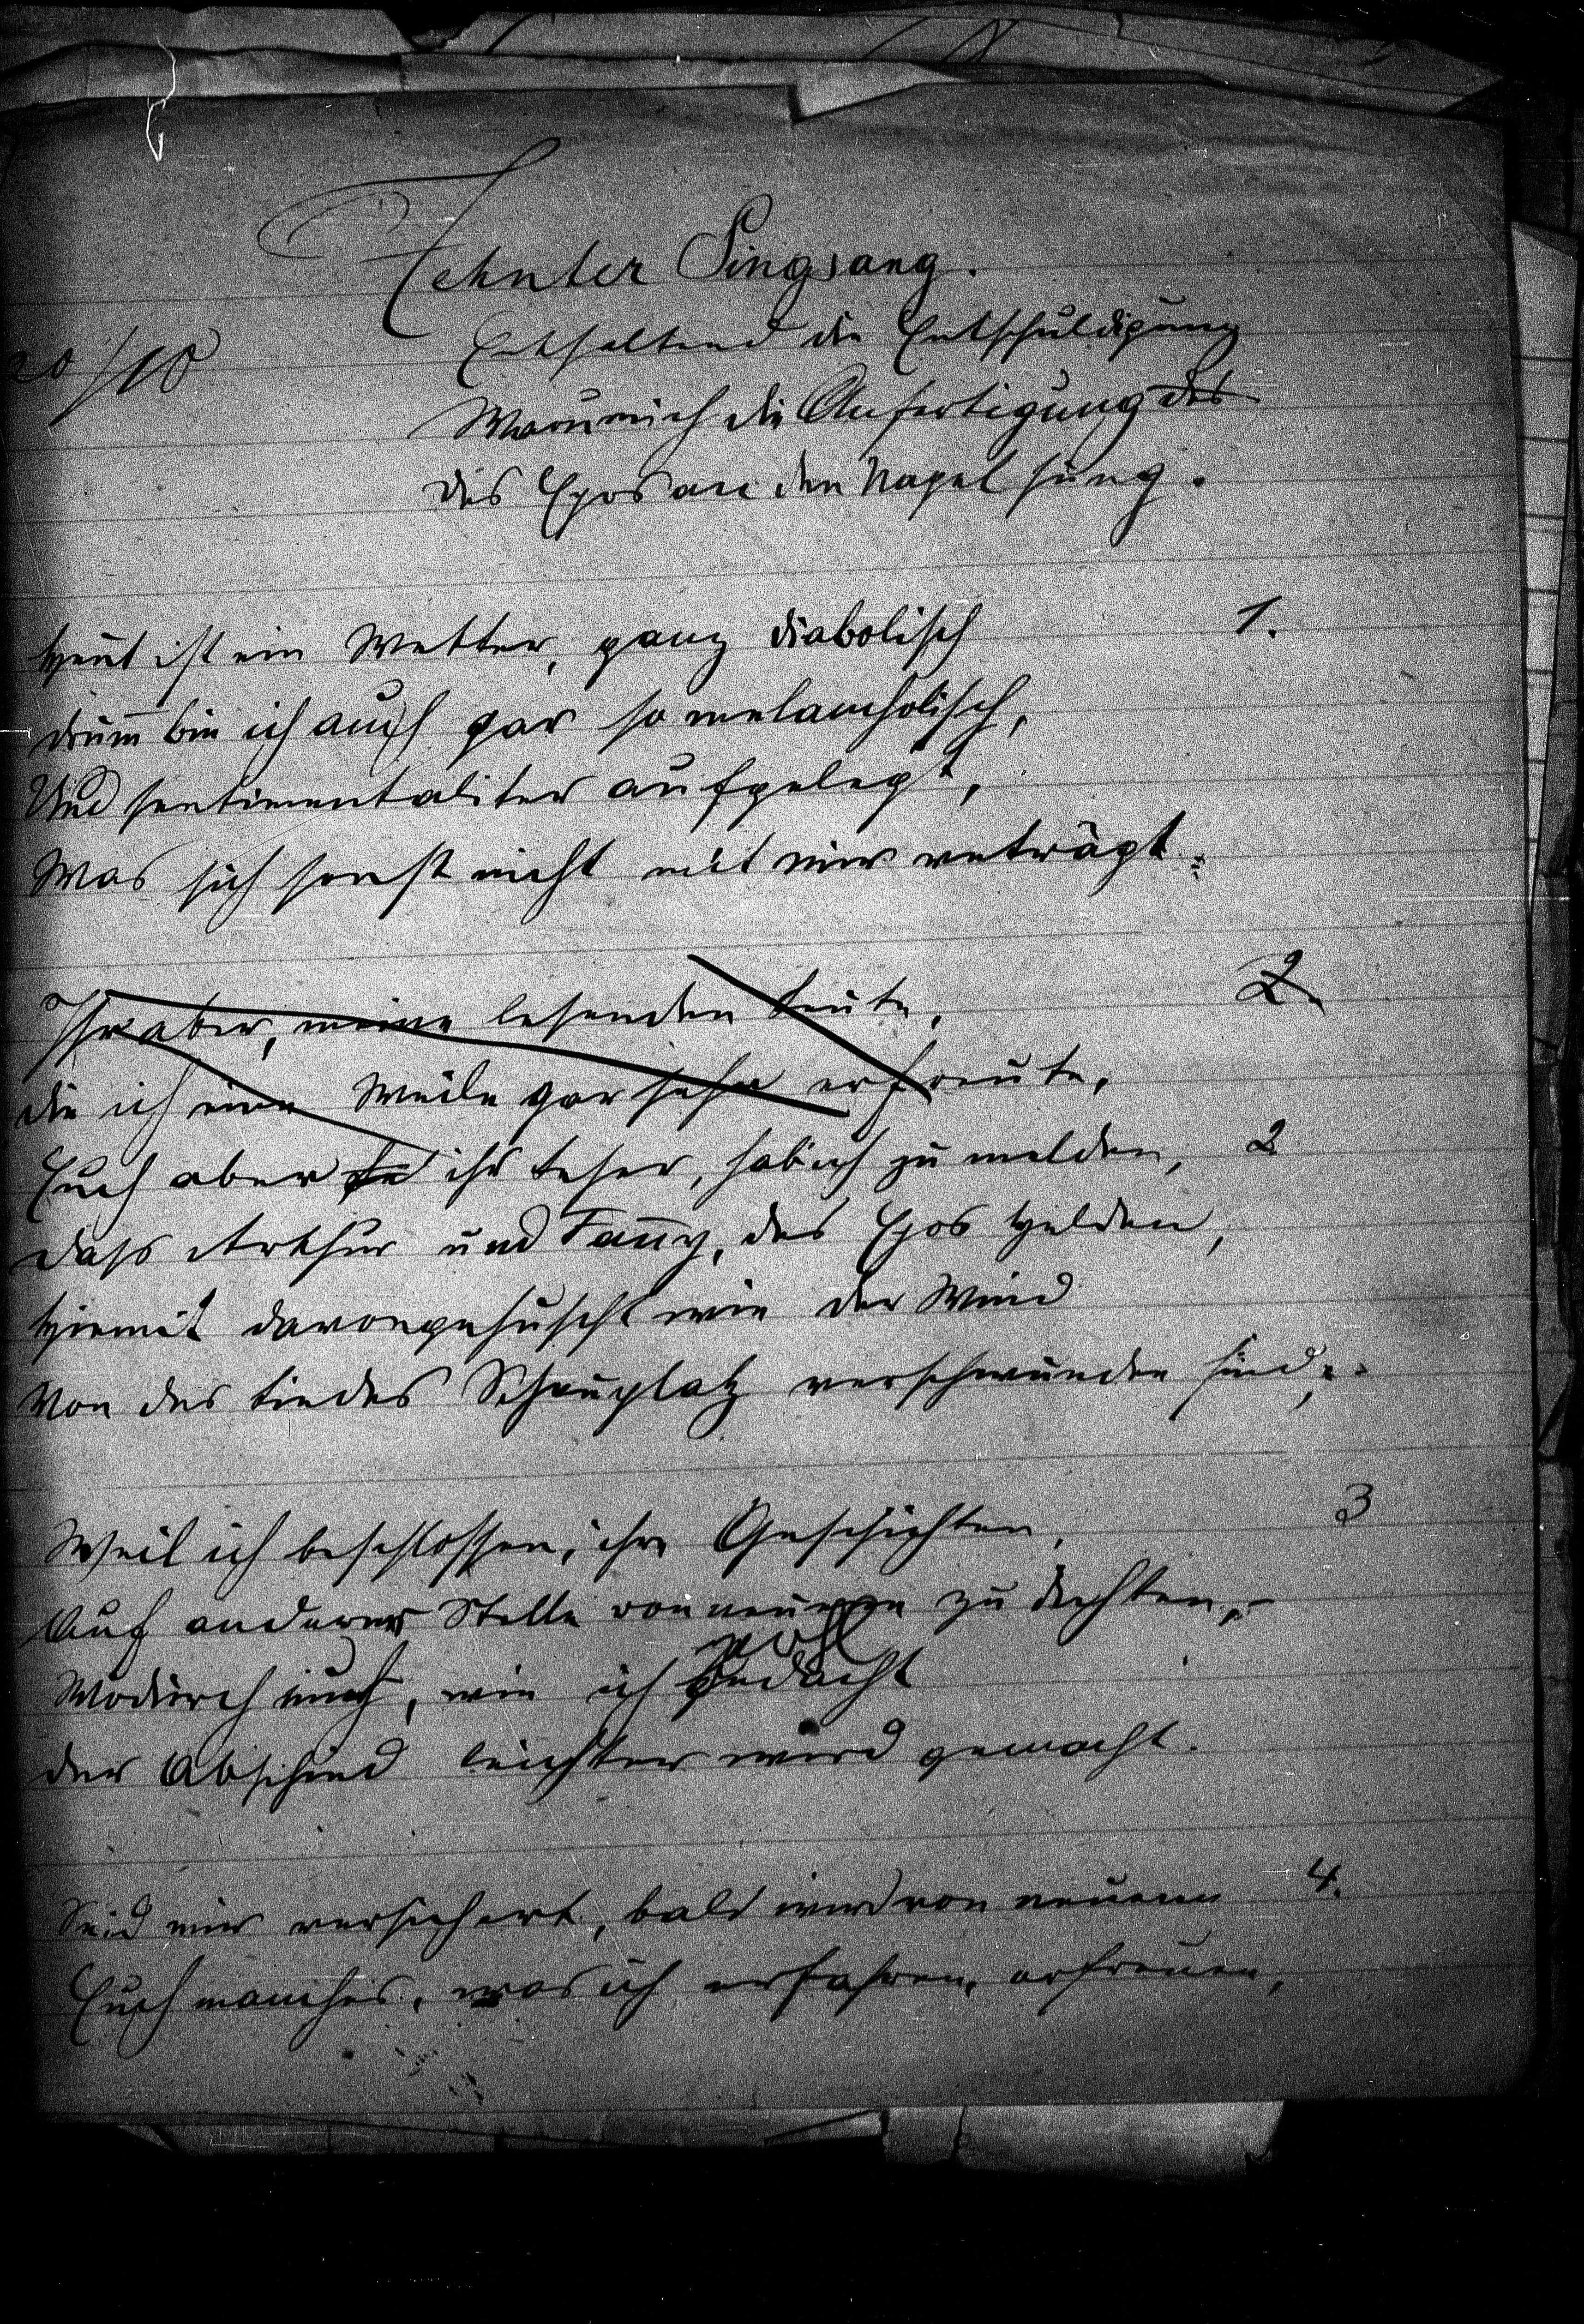 Zehnter Singsang.
20/10
Enthaltend die Entschuldigung
Warum ich die Anfertigung des
des Epos an den Nagel hing.
1.
Heut ist ein Wetter, ganz diabolisch
drum̄ bin ich auch gar so melancholisch,
Und sentimentaliter aufgelegt,
Was sich sonst nicht mit mir verträgt.
2.
Ihr aber, meine lesenden Leute,
die ich eine Weile gar sehr erfreute,
Euch aber ihr Leser, hab ich zu melden, 2
dass Arthur und Fan̄y, des Epos Helden,
Hiemit davongehuscht wie der Wind
Von des Liedes Schauplatz verschwunden sind,
3
Weil ich beschlossen, ihre Geschichten,
Auf anderer Stelle von neuem zu dichten,
wohl
Wodurch euch, wie ich gedacht
der Abschied leichter wird gemacht.
4.
Seid mir versichert, bald wird von neuem
Euch manches, was ich erfahren, erfreuen,